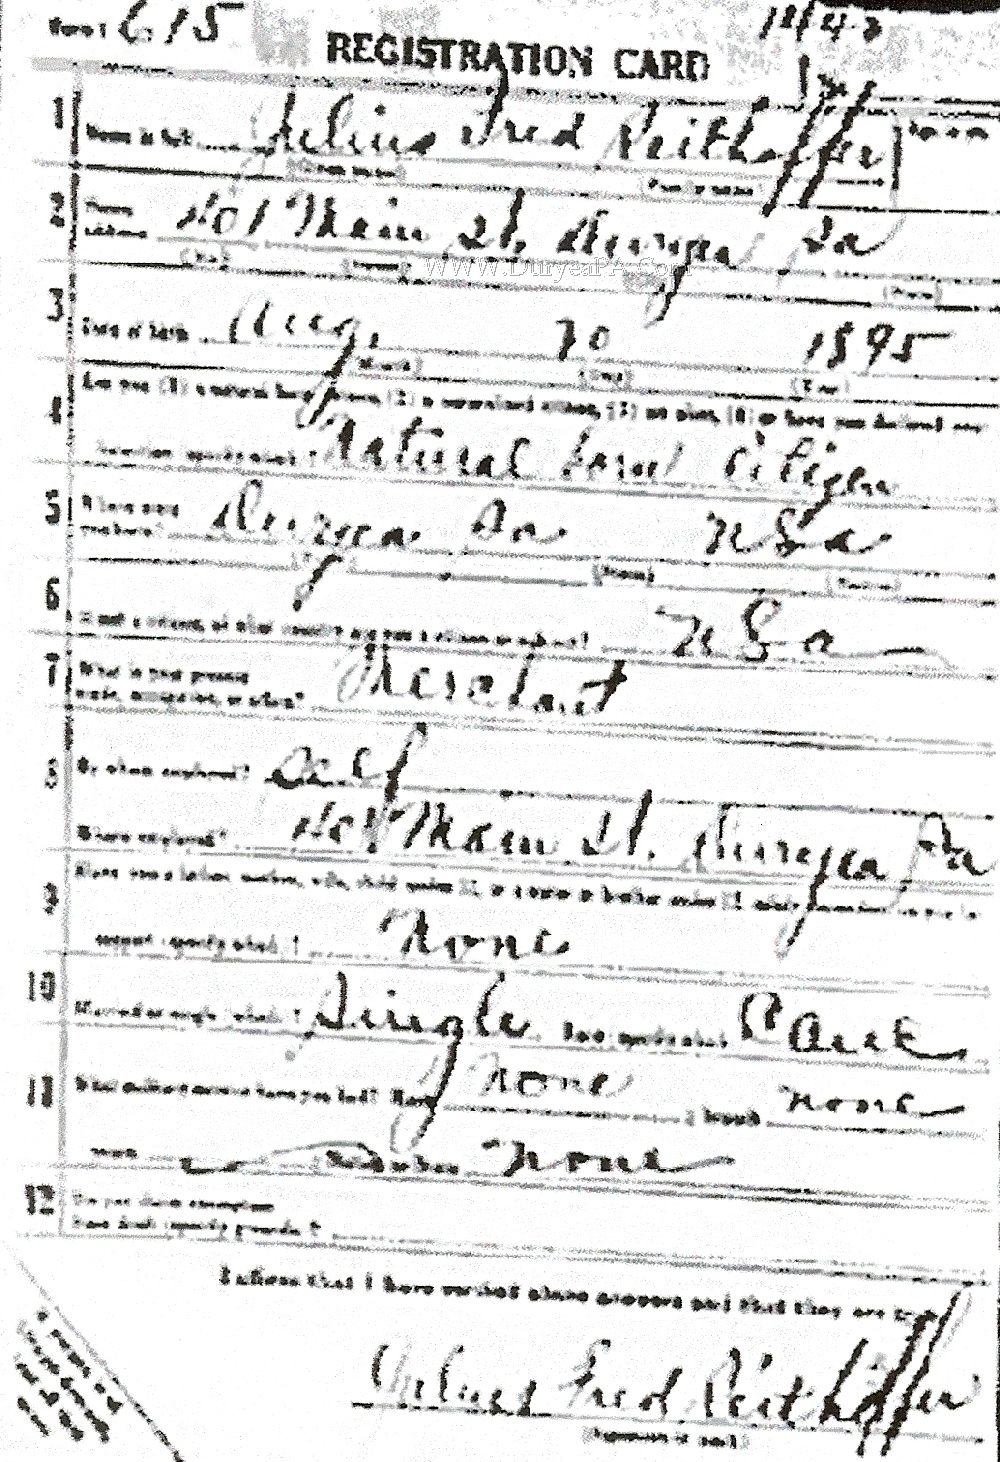 Form 1 615
REGISTRATION CARD
1 Name in full Julius Fred Reithoffer
(Given name) (Family name)
2 Home address 401 Main St. Duryea Pa
(No.) (Street) (State)
www.DuryeaPA.Com
3 Date of birth Aug. 1895
(Month) (Day) (Year)
4 Are you (1) a natural born citizen, (2) a naturalized citizen, (3) an alien, (4) or have you declared your
intention (specify which)? Natural born Citizen
5 Where were you born? Duryea Pa USa
(State) (Nation)
6 If not a citizen, of what country are you a citizen or subject? USa
7 What is your present trade, occupation, or office? Merchant
8 By whom employed? Self
Where employed? 401 Main St. Duryea Pa
9 Have you a father, mother, wife, child under 12, or a sister or brother under 12, solely dependent on you for
support (specify which)? None
10 Married or single (which)? Single Race (specify which)
11 What military service have you had? Rank None ; branch none
years Nation or State None
12 Do you claim exemption from draft (specify grounds)?
I affirm that I have verified above answers and that they are true.
Julius Fred Reithoffer
(Signature or mark)